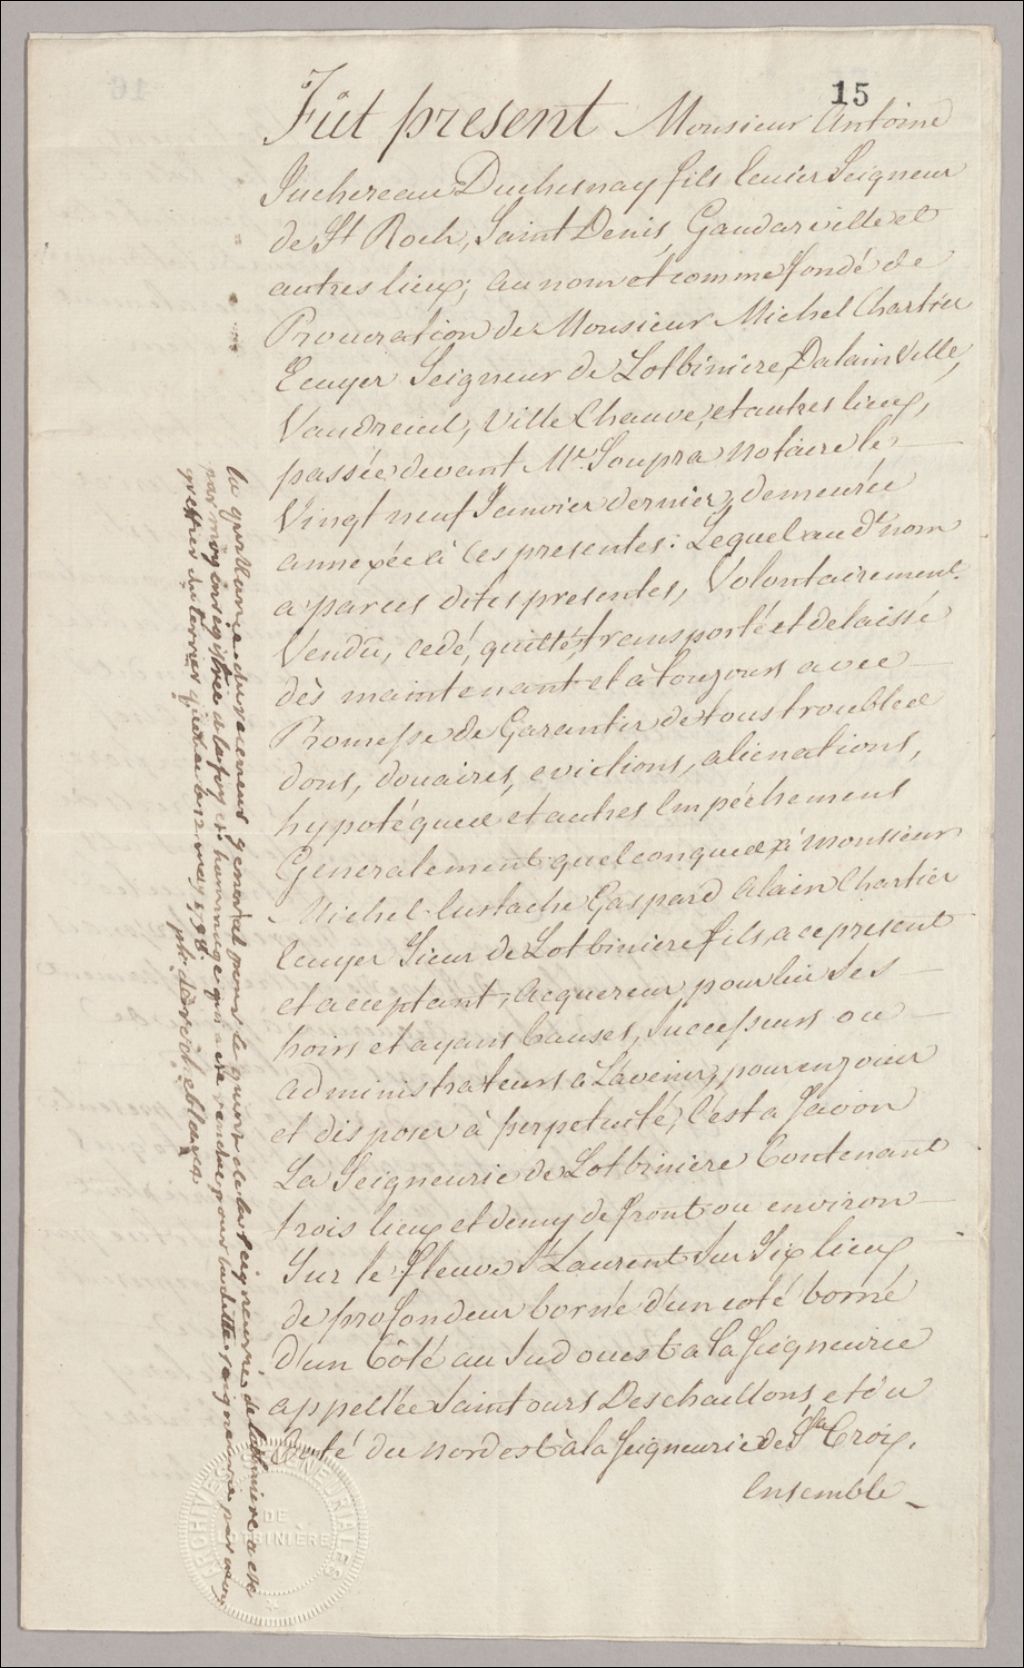 15
Fût present Monsieur Antoine
Juchereau Duchesnay fils Ecuier Seigneur
de St Roch, Saint Denis, Gaudarville et
autres lieux; au nom et comme fondé de
Procuration de Monsieur Michel Chartier
Ecuyer Seigneur de Lotbiniere, Dalainville,
Vaudreuil, Ville Chauve, et autres lieux,
passée devant Me. Soupra Notaire le
Vingt neuf Janvier dernier, demeurée
annexée à ces presentes: Lequel au dt nom
a par ces dites presentes, Volontairement
Vendû, cedé, quitté, transporté et delaissé
dès maintenant et à toujours avec
Promesse de Garantir de tous troubles
dons, douaires, evictions, alienations,
hypotéques et autres Empéchemens
Generalement quelconques à Monsieur
Michel Eustache Gaspard Alain Chartier
Ecuyer Sieur de Lotbiniere fils, a ce present
et acceptant, acquereur pour lui Ses
hoirs et ayans Causes, Successeurs ou
administrateurs à L'avenir, pour en jouir
et disposer à perpetuité, C'est a Savoir
La Seigneurie de Lotbiniere Contenant
trois lieux et demy de front ou environ
Sur le fleuve St Laurent Sur Six lieux
de profondeur borné d'un coté borné
d'un Côté au Sud ouest a La Seigneurie
appellée Saint ours Deschaillons, et d'u
Coté du nord est à la Seigneurie de Sta Croix.
Ensemble
la quittance du receveur general pour le quint de la seigneurie de lotbiniere a ete
par moy enregistrée et la foy et hommage qui a ete rendue pour laditte seigneurie par moy
greffier du terrier quebec ce 12 may 1798.
ARCHIVES SEIGNEURIALES
DE
LOTBINIÈRE